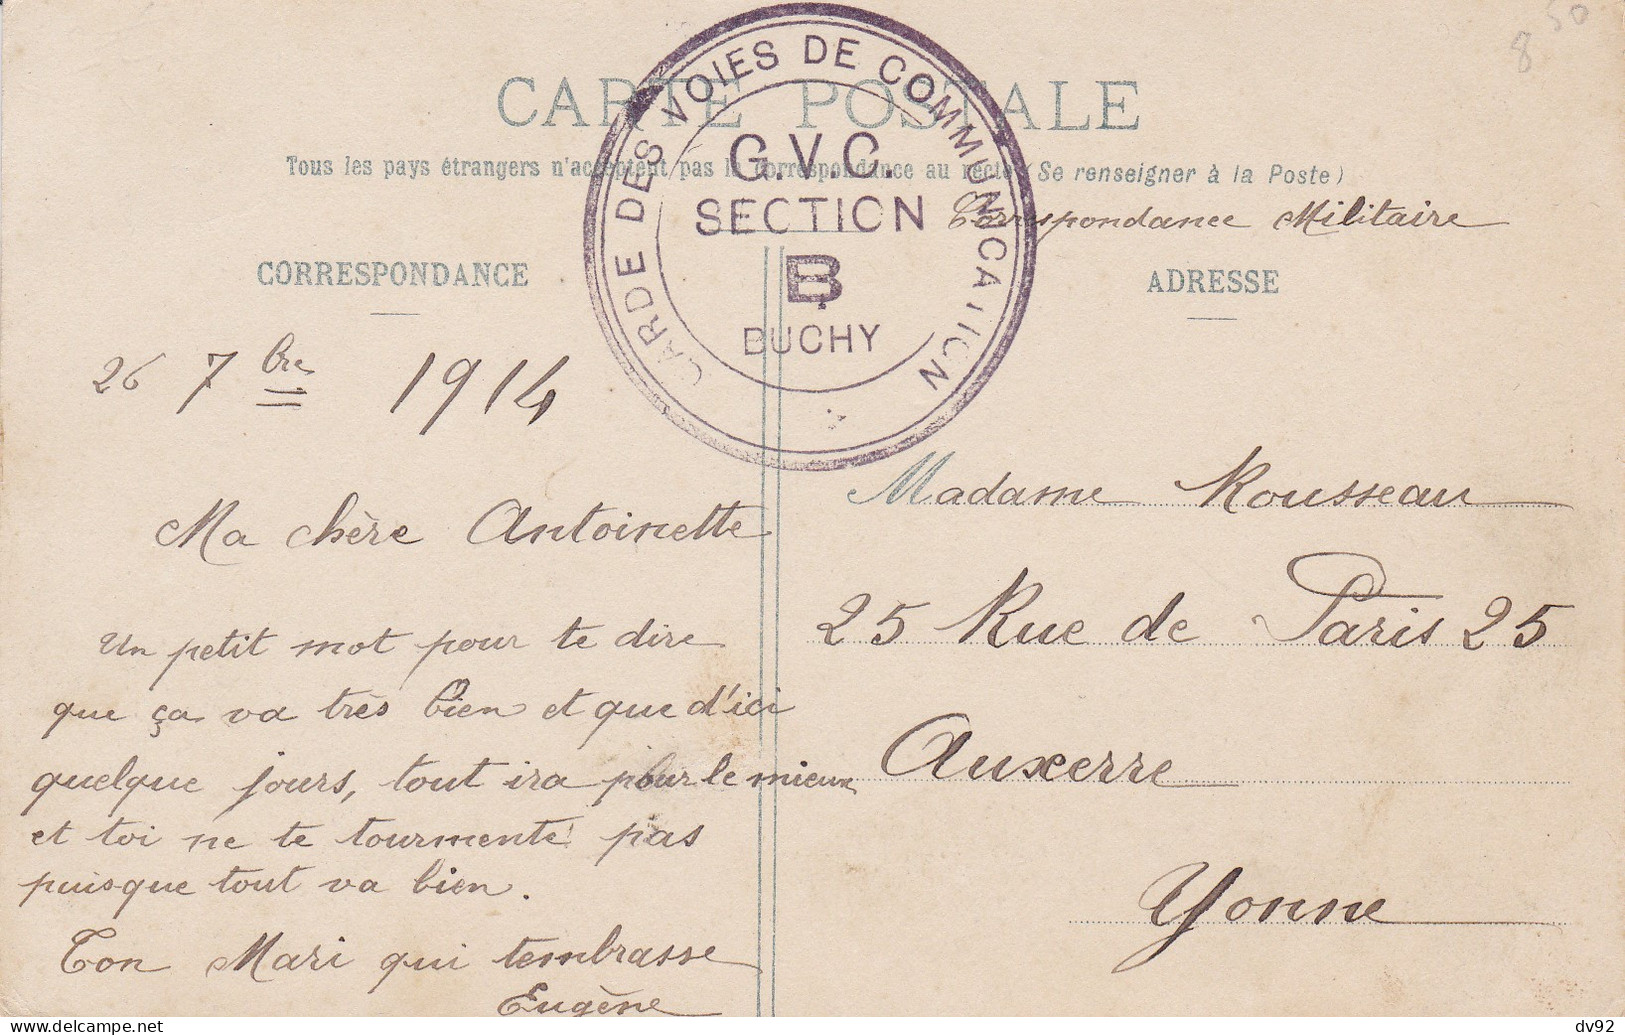 8 50
CARTE POSTALE
Tous les pays étrangers n'acceptent pas la correspondance au recto (Se renseigner à la Poste)
GARDE DES VOIES DE COMMUNICATION
G.V.C.
SECTION
B
BUCHY
Correspondance Militaire
CORRESPONDANCE
ADRESSE
26 7bre 1914
Ma chère Antoinette
Un petit mot pour te dire
que ça va très bien et que d'ici
quelque jours, tout ira pour le mieux
et toi ne te tourmente pas
puisque tout va bien.
Ton Mari qui t'embrasse
Eugène
Madame Rousseau
25 Rue de Paris 25
Auxerre
Yonne
dv92